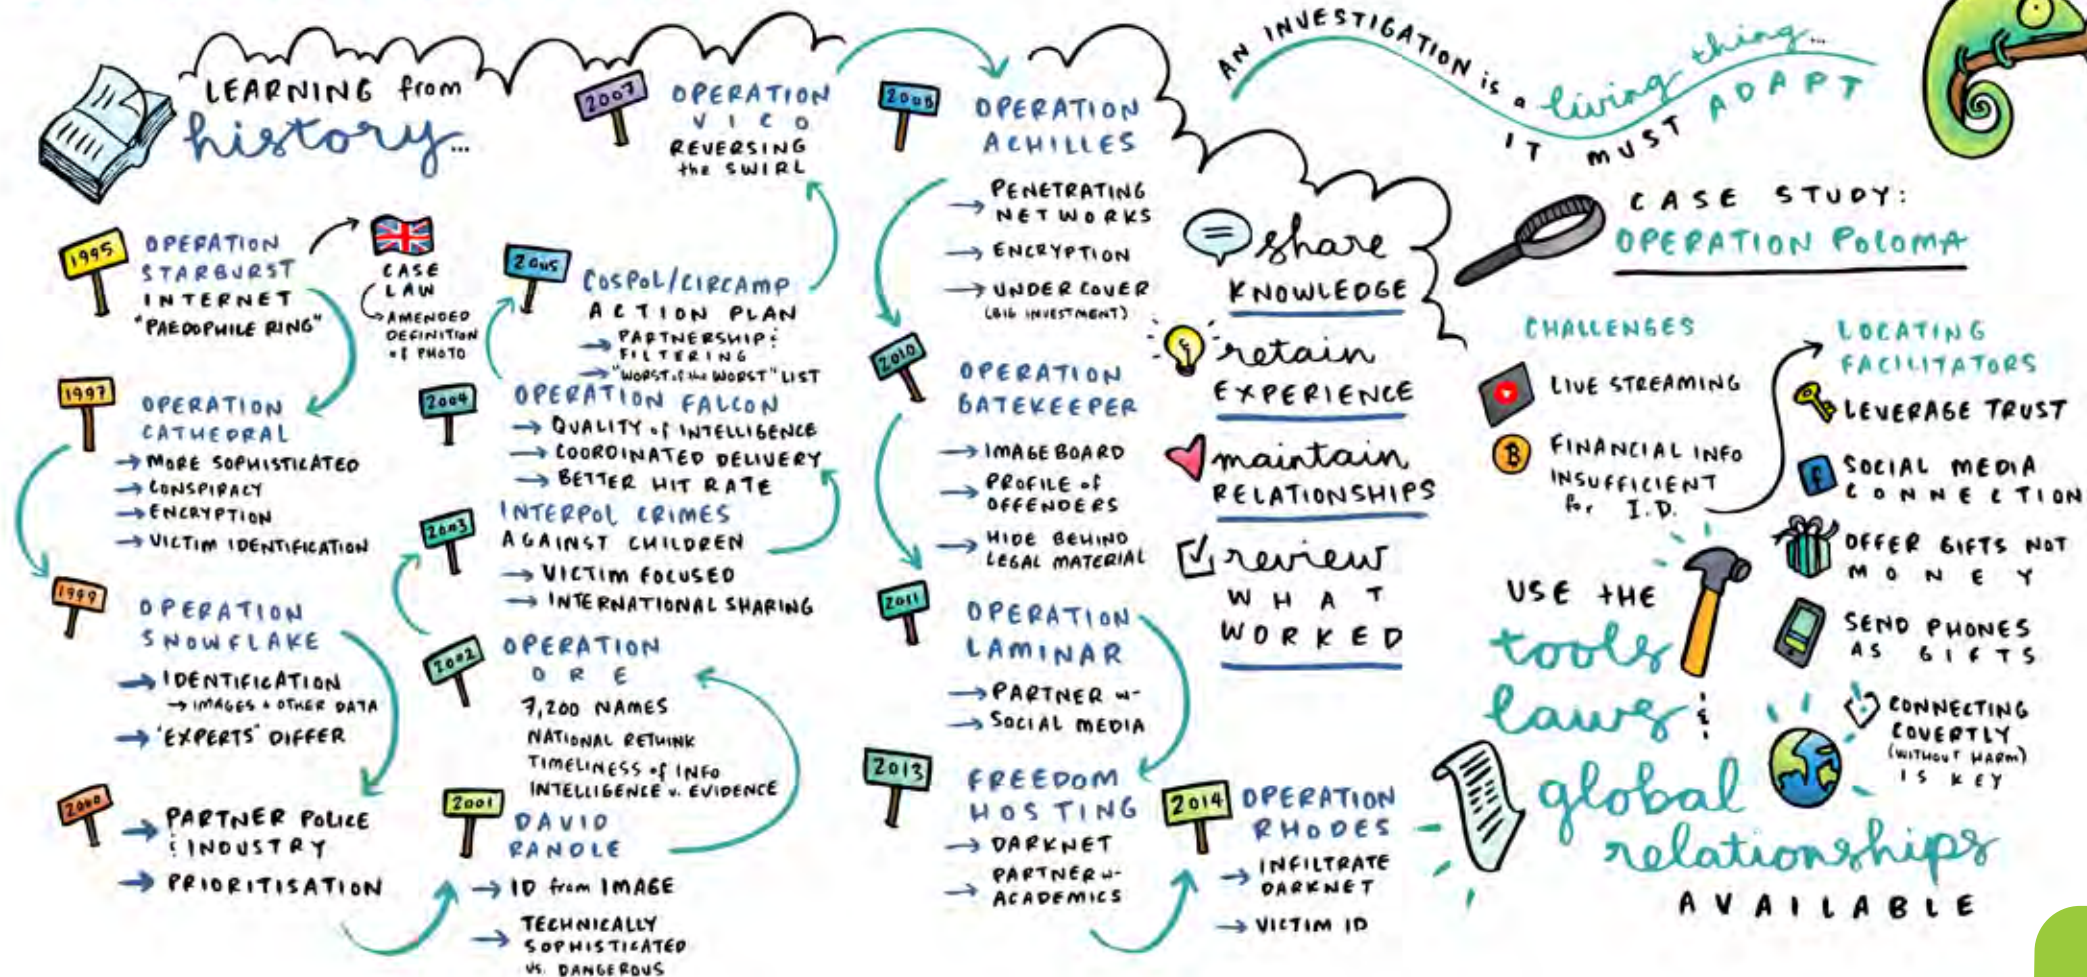 LEARNING from
history...
1995
OPERATION
STARBURST
INTERNET
"PAEDOPHILE RING"
CASE
LAW
AMENDED
DEFINITION
of PHOTO
1997
OPERATION
CATHEDRAL
→ MORE SOPHISTICATED
→ CONSPIRACY
→ ENCRYPTION
→ VICTIM IDENTIFICATION
1999
OPERATION
SNOWFLAKE
→ IDENTIFICATION
→ IMAGES + OTHER DATA
→ "EXPERTS" DIFFER
2000
→ PARTNER POLICE
& INDUSTRY
→ PRIORITISATION
2001
DAVID
RANDLE
→ ID from IMAGE
→ TECHNICALLY
SOPHISTICATED
vs. DANGEROUS
2002
OPERATION
ORE
7,200 NAMES
NATIONAL RETHINK
TIMELINESS of INFO
INTELLIGENCE v. EVIDENCE
2003
INTERPOL CRIMES
AGAINST CHILDREN
→ VICTIM FOCUSED
→ INTERNATIONAL SHARING
2004
OPERATION FALCON
→ QUALITY of INTELLIGENCE
→ COORDINATED DELIVERY
→ BETTER HIT RATE
2005
COSPOL/CIRCAMP
ACTION PLAN
→ PARTNERSHIP &
FILTERING
→ "WORST of the WORST" LIST
2007
OPERATION
VICO
REVERSING
the SWIRL
2008
OPERATION
ACHILLES
→ PENETRATING
NETWORKS
→ ENCRYPTION
→ UNDERCOVER
(BIG INVESTMENT)
2010
OPERATION
GATEKEEPER
→ IMAGEBOARD
→ PROFILE of
OFFENDERS
→ HIDE BEHIND
LEGAL MATERIAL
2011
OPERATION
LAMINAR
→ PARTNER w-
→ SOCIAL MEDIA
2013
FREEDOM
HOSTING
→ DARKNET
→ PARTNER w-
ACADEMICS
2014
OPERATION
RHODES
→ INFILTRATE
DARKNET
→ VICTIM ID
share
KNOWLEDGE
retain
EXPERIENCE
maintain
RELATIONSHIPS
review
WHAT
WORKED
AN INVESTIGATION is a living thing...
IT MUST ADAPT
CASE STUDY:
OPERATION POLOMA
CHALLENGES
LIVE STREAMING
B
FINANCIAL INFO
INSUFFICIENT
for I.D.
LOCATING
FACILITATORS
LEVERAGE TRUST
f
SOCIAL MEDIA
CONNECTION
OFFER GIFTS NOT
MONEY
SEND PHONES
AS GIFTS
CONNECTING
COVERTLY
(WITHOUT HARM)
IS KEY
USE THE
tools
laws &
global
relationships
AVAILABLE